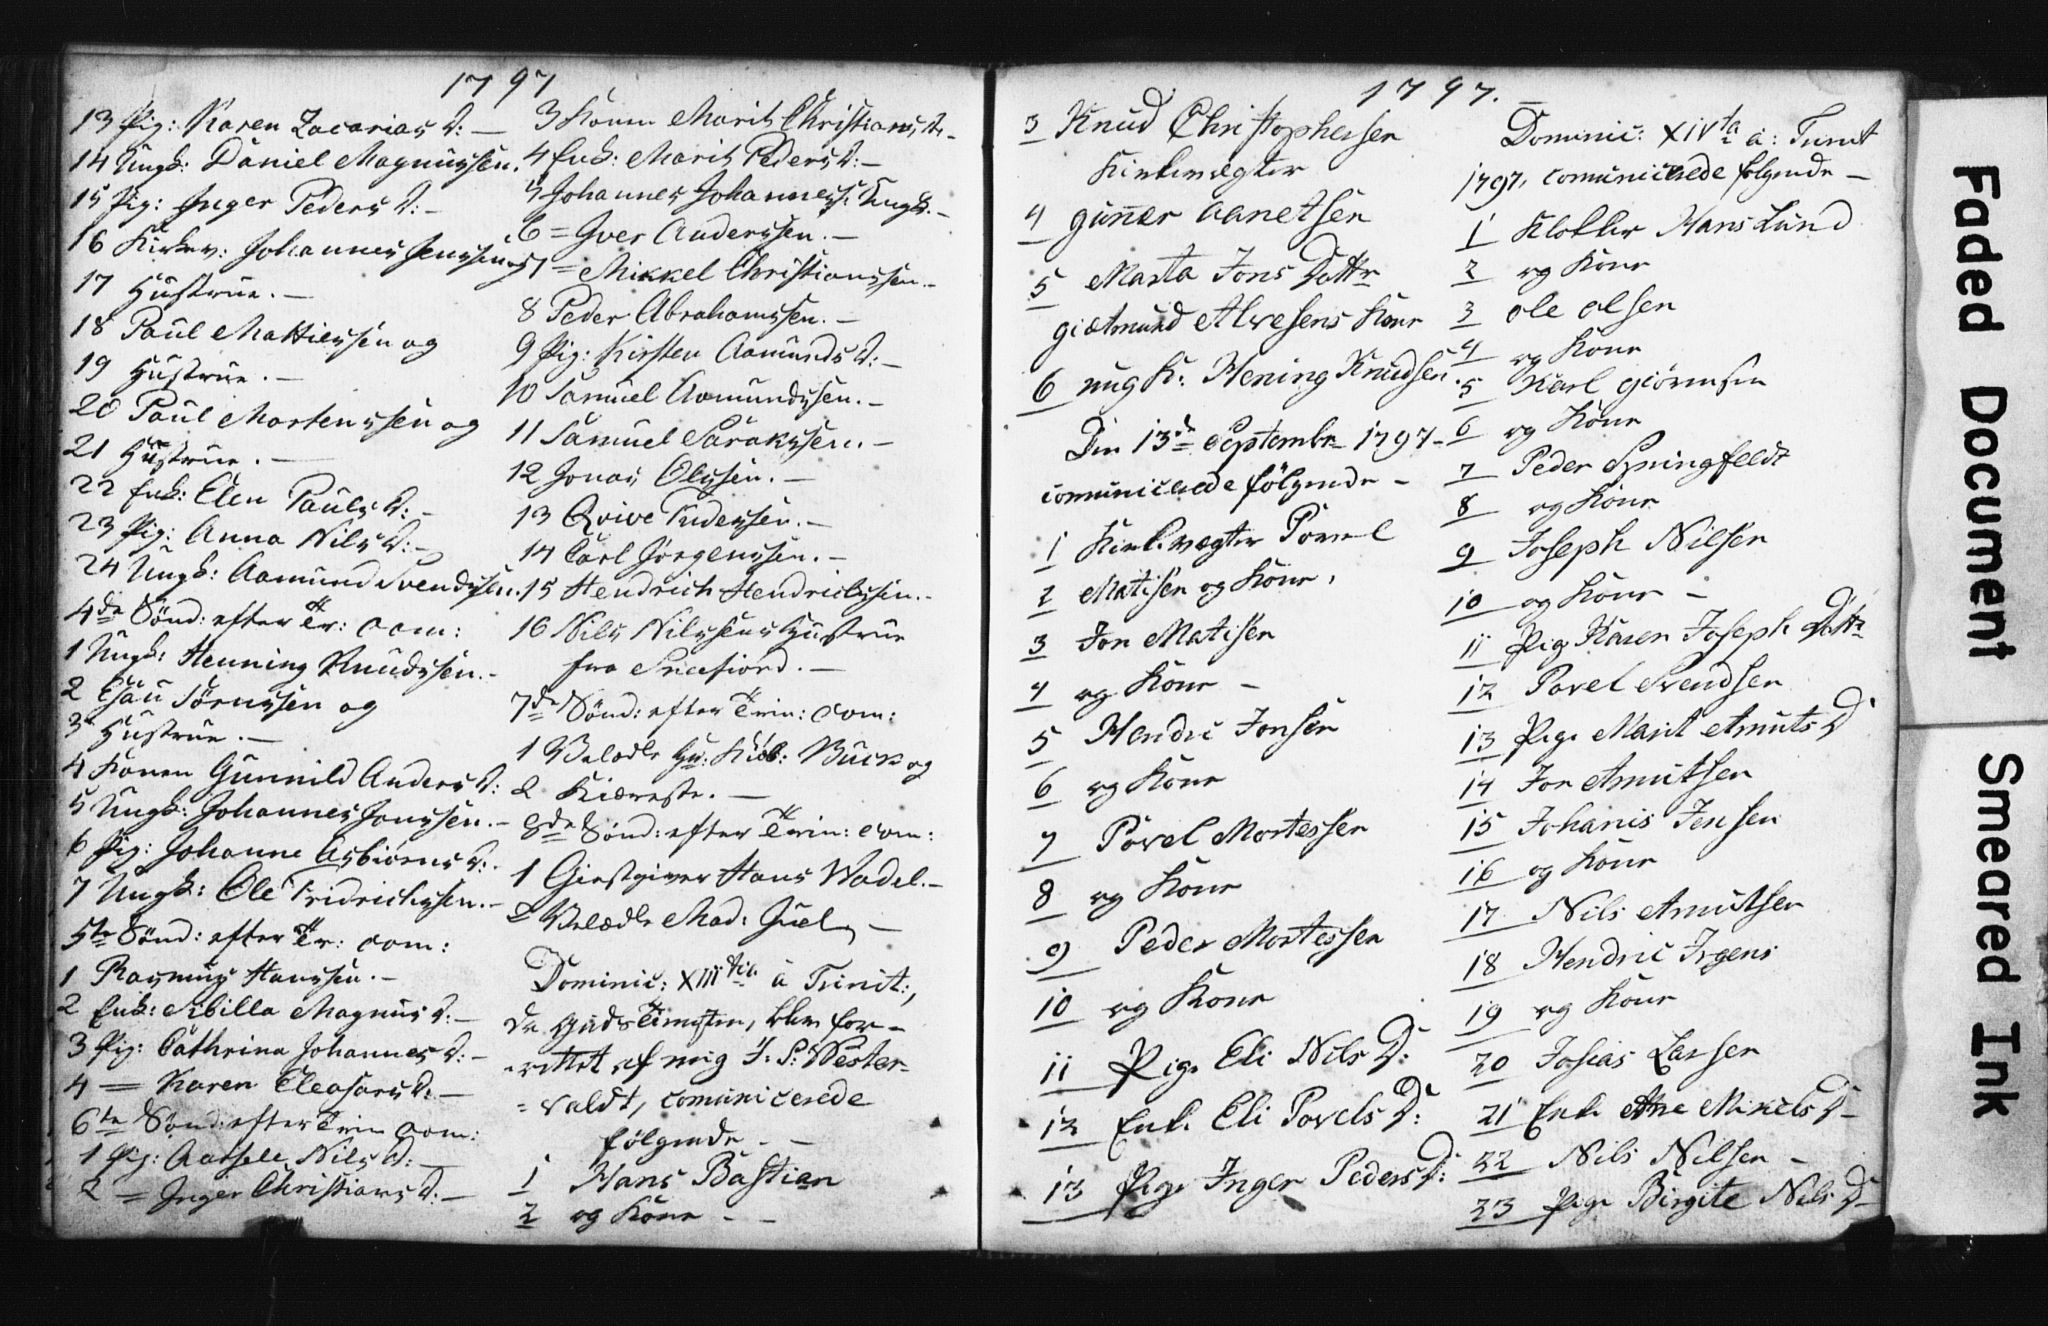 1797
13 Pig: Karen Zacarias D: —
14 Ungk: Daniel Magnussen.
15 Pig: Inger Peders D: -
16 Kirkev: Johannes Jenssen og
17 Hustrue. —
18 Paul Mattiessen og
19 Hustrue. —
20 Paul Mortenssen og
21 Hustrue. —
22 Enk: Elen Pauls D: -
23 Pig: Anna Nils D: -
24 Ungk: Aamund Svendssen.
4de Sønd: efter Tr: com:
1 Ungk: Henning Knudssen. -
2 Esau Sørnssen og
3 Hustrue. —
4 Konen Gunnild Anders D:
5 Ungk: Johannes Jonssen. -
6 Pig: Johanne Asbiørns D: -
7 Ungk: Ole Fridrichssen. -
5te Sønd: efter Tr: com:
1 Rasmus Hanssen. -
2 Enk: Sibilla Magnus D: -
3 Pig: Cathrina Johannes D: -
4 — Karen Eleasars D: —
6te Sønd: efter Trin com:
1 Pig: Nils D: —
2 = Inger Christians D: —
3 Konen Marit Christians D. -
4 Enk: Marit Peders D: —
5 Johannes Johanness: Ungk. -
6 = Iver Anderssen. —
7 = Mikkel Christianssen. -
8 Peder Abrahamssen. —
9 Pig: Kirsten Aamunds D: —
10 Samuel Aamundssen. -
11 Samuel Sarakssen. -
12 Jonas Olssen. —
13 Qvive Tudessen. -
14 Carl Jørgenssen. —
15 Hendrich Hendrichssen. -
16 Nils Nilssens Hustrue
fra Snefiord. —
7de Sønd: efter Trin: com:
1 Velædle Hr: Kiøb: Buck og
2 Kiæreste. —
8de Sønd: efter Trin: com:
1 Giestgiver Hans Wadel. -
2 Velædle Mad: Juel, —
Dominic: XIIItia a Trinit:,
da Guds Tienisten, blev for-
-rettet af mig J: P: Wester=
= valdt, comunicerede
følgende - -
1 Hans Bastian
2 og Kone - -
1797.
3 Knud Christophersen
Kirkevægter
4 gunner aanetsen
5 Marta Jons Dattr
giætmund Alvesens Kone
6 ungk: Hening Knudsen.
Den 13de Septembr 1797-
comunicerede følgende -
1 Kirkevægter Povel
2 Matisen og Kone,
3 Jon Matisen
4 og Kone -
5 Hendric Jonsen
6 og Kone
7 Povel Mortessen
8 og Kone
9 Peder Mortessen
10 og Kone
11 Pige Eli Nils D:
12 Enk. Eli Povels D:
13 Pige Inger Peders D:
Dominic: XIVta a: Trinit
1797, comunicerede følgende —
1 Klokker Hans Lund
2 og Kone
3 ole olsen
4 og Kone
5 Karl giørensen
6 og Kone
7 Peder Springfeldt
8 og Kone
9 Joseph Nilsen
10 og Kone -
11 Pig Karen Joseph Dattr
12 Povel Svendsen
13 Pige Marit Amuts D
14 Jon Amutsen
15 Johanis Jensen
16 og Kone
17 Nils Amutsen
18 Hendric Irgens
19 og Kone
20 Josias Larsen
21 Enk. Ane Mikels D-
22 Nils Nilsen -
23 Pige Birgite Nils D-
Faded Document
Smeared Ink